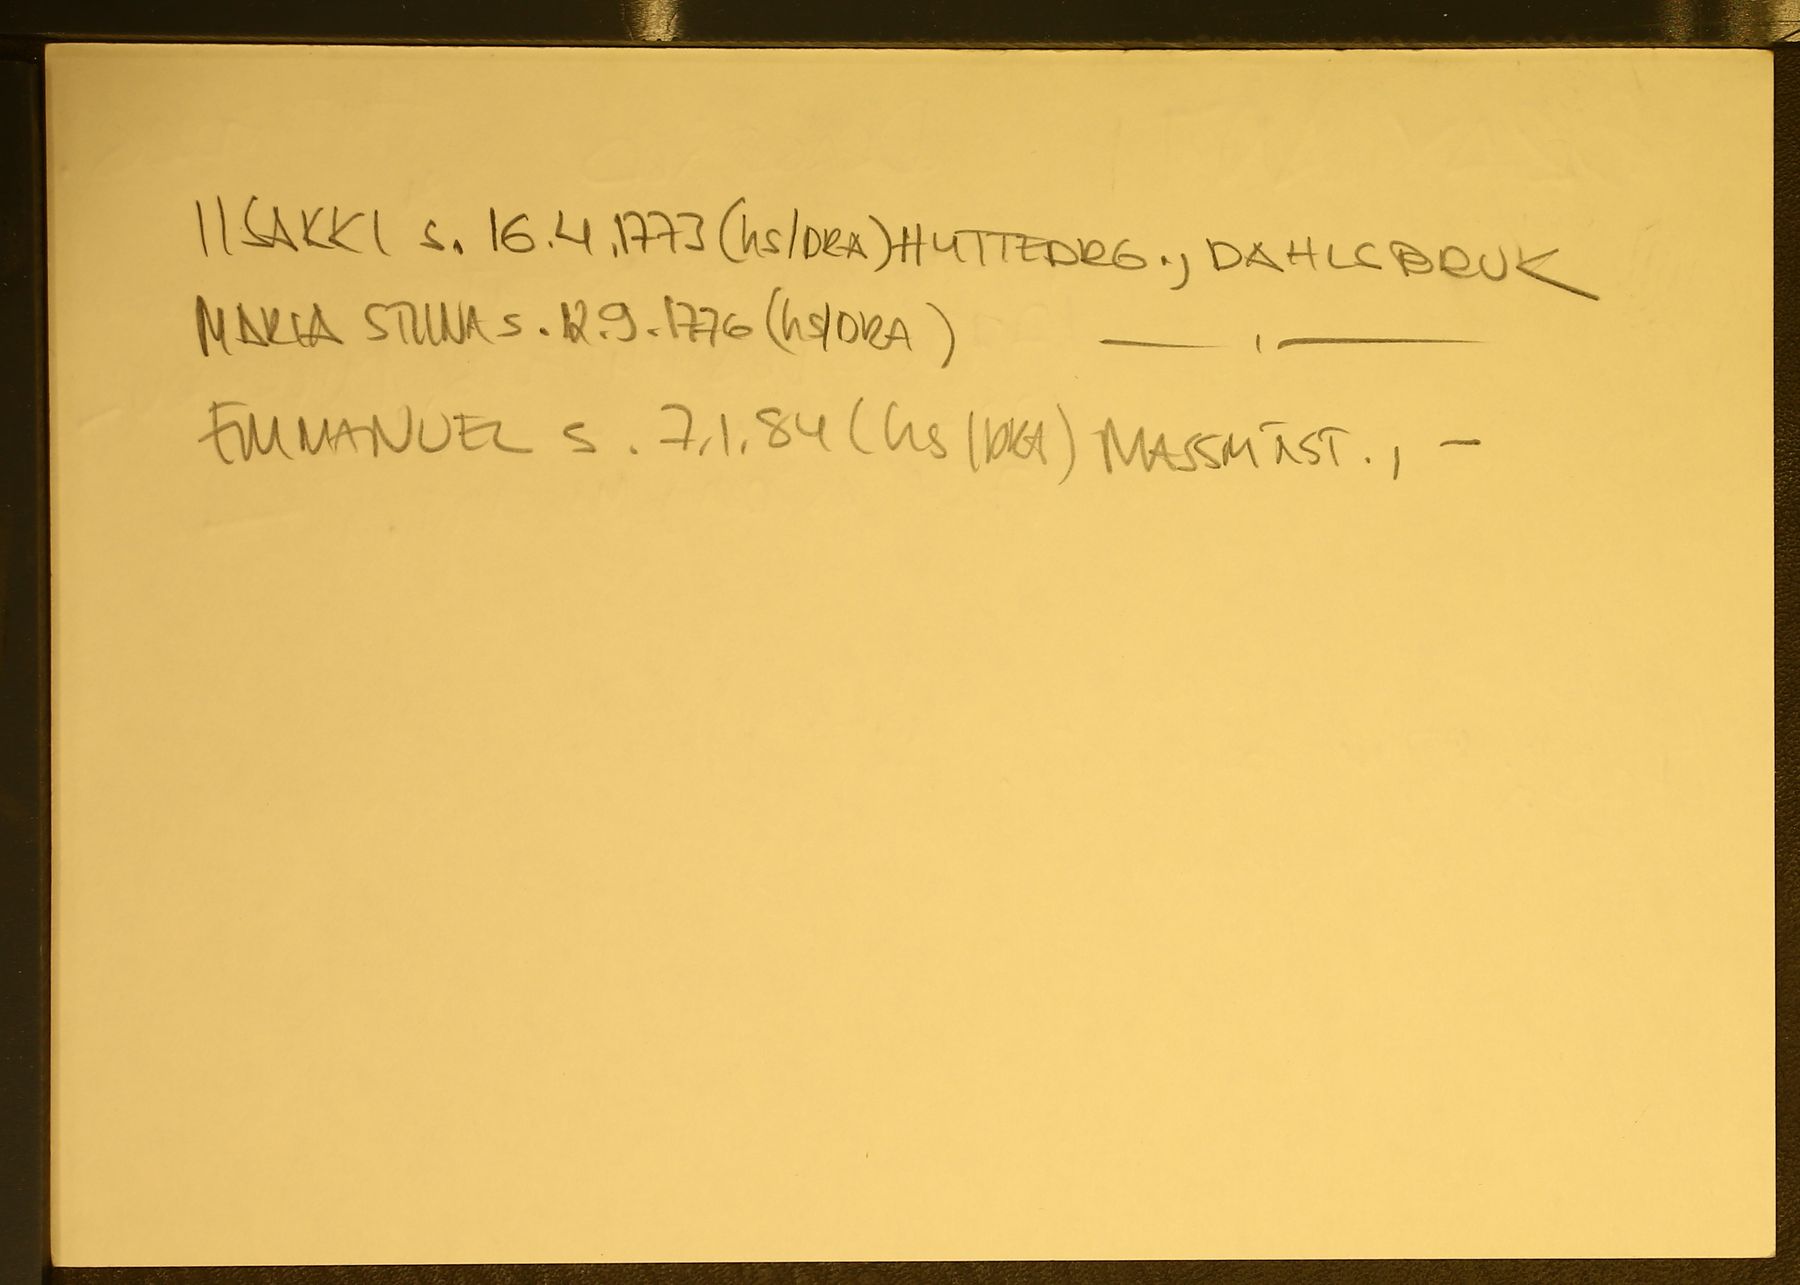 IISAKKI s. 16.4.1773 (hs/DRA) HUTTEDRG., DAHLSBRUK
MARIA STINA s. 12.9.1776 (hs/DRA) — , —
EMMANUEL s. 7.1.84 (hs/DRA) MASSMÄST., —